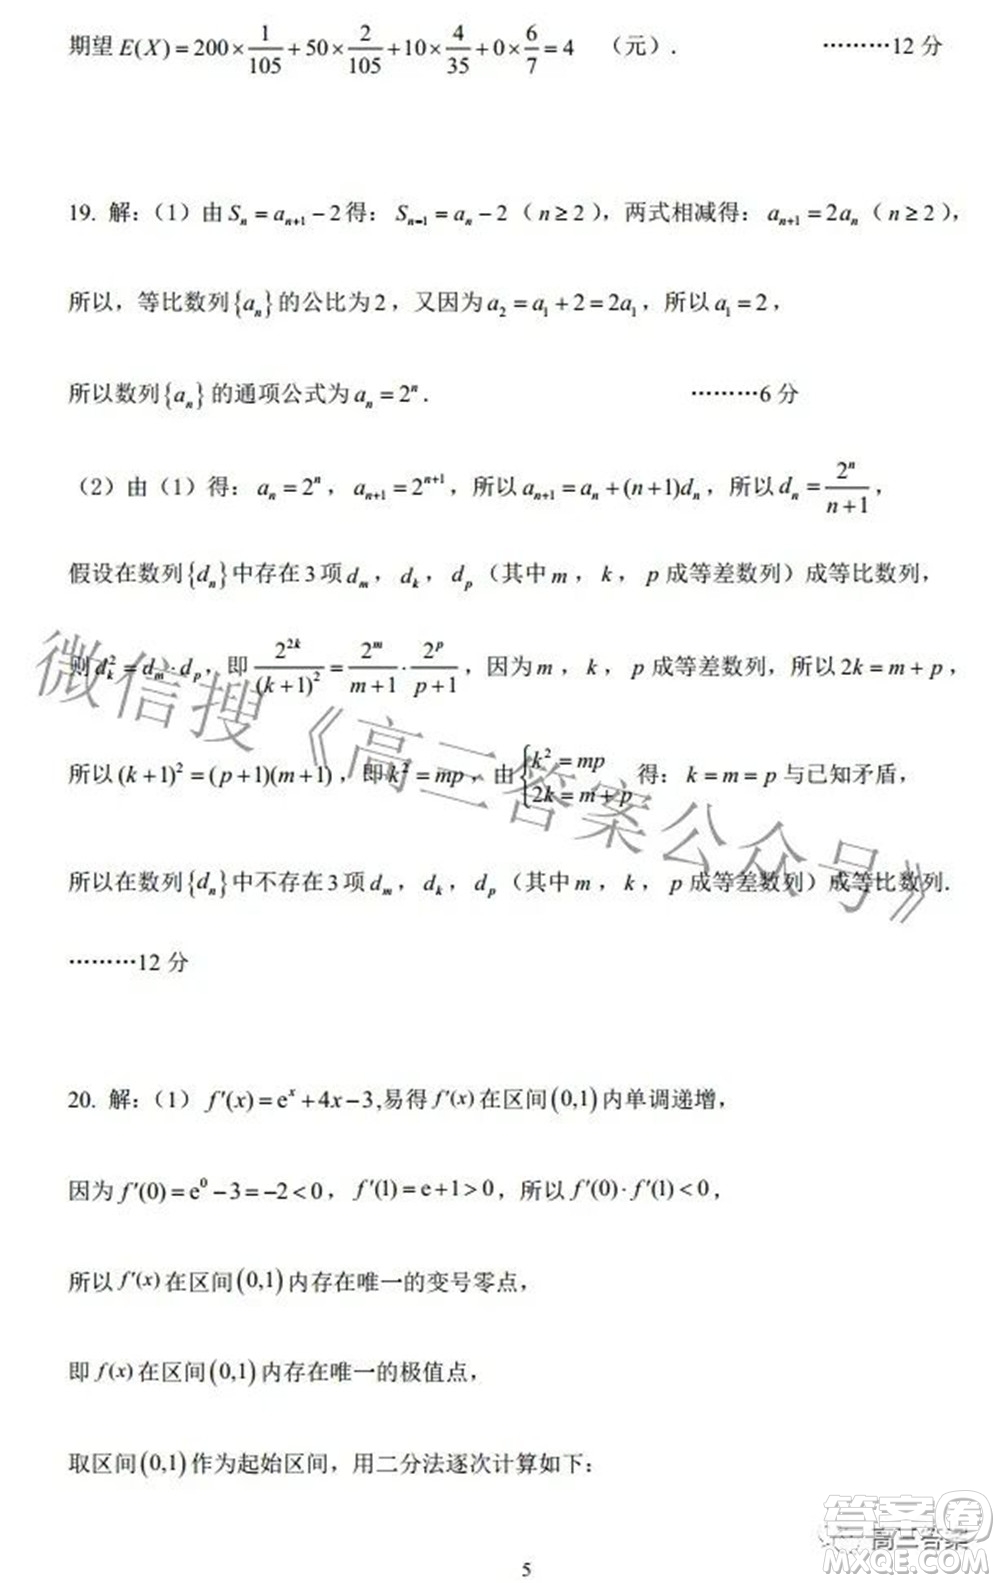 期望 E(X)=200×1/105+50×2/105+10×4/35+0×6/7=4 （元）. ………12 分
19. 解：（1）由 Sₙ=aₙ₊₁−2 得：Sₙ₋₁=aₙ−2（n≥2），两式相减得：aₙ₊₁=2aₙ（n≥2），
所以，等比数列{aₙ}的公比为 2，又因为 a₂=a₁+2=2a₁，所以 a₁=2，
所以数列{aₙ}的通项公式为 aₙ=2ⁿ. ………6 分
（2）由（1）得：aₙ=2ⁿ，aₙ₊₁=2ⁿ⁺¹，所以 aₙ₊₁=aₙ+(n+1)dₙ，所以 dₙ=2ⁿ/(n+1)，
假设在数列{dₙ}中存在 3 项 dₘ，dₖ，dₚ（其中 m，k，p 成等差数列）成等比数列，
则 dₖ²=dₘ·dₚ，即 2²ᵏ/(k+1)²=2ᵐ/(m+1)·2ᵖ/(p+1)，因为 m，k，p 成等差数列，所以 2k=m+p，
所以 (k+1)²=(p+1)(m+1)，即 k²=mp，由{k²=mp 2k=m+p 得：k=m=p 与已知矛盾，
所以在数列{dₙ}中不存在 3 项 dₘ，dₖ，dₚ（其中 m，k，p 成等差数列）成等比数列.
………12 分
20. 解：（1） f′(x)=eˣ+4x−3,易得 f′(x) 在区间(0,1)内单调递增，
因为 f′(0)=e⁰−3=−2<0，f′(1)=e+1>0，所以 f′(0)·f′(1)<0，
所以 f′(x) 在区间(0,1)内存在唯一的变号零点，
即 f(x) 在区间(0,1)内存在唯一的极值点，
取区间(0,1)作为起始区间，用二分法逐次计算如下：
5
微信搜《高三答案公众号》
高三答案
答案圈
MXQE.COM